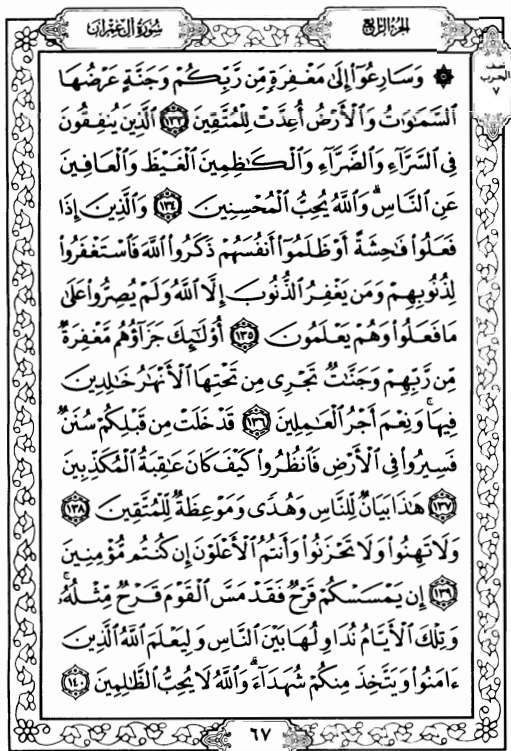 الجزء الرابع
سورة آل عمران
نصف
الحزب
٧
۞ وَسَارِعُوٓا۟ إِلَىٰ مَغْفِرَةٍ مِّن رَّبِّكُمْ وَجَنَّةٍ عَرْضُهَا
ٱلسَّمَٰوَٰتُ وَٱلْأَرْضُ أُعِدَّتْ لِلْمُتَّقِينَ ١٣٣ ٱلَّذِينَ يُنفِقُونَ
فِى ٱلسَّرَّآءِ وَٱلضَّرَّآءِ وَٱلْكَٰظِمِينَ ٱلْغَيْظَ وَٱلْعَافِينَ
عَنِ ٱلنَّاسِ ۗ وَٱللَّهُ يُحِبُّ ٱلْمُحْسِنِينَ ١٣٤ وَٱلَّذِينَ إِذَا
فَعَلُوا۟ فَٰحِشَةً أَوْ ظَلَمُوٓا۟ أَنفُسَهُمْ ذَكَرُوا۟ ٱللَّهَ فَٱسْتَغْفَرُوا۟
لِذُنُوبِهِمْ وَمَن يَغْفِرُ ٱلذُّنُوبَ إِلَّا ٱللَّهُ وَلَمْ يُصِرُّوا۟ عَلَىٰ
مَا فَعَلُوا۟ وَهُمْ يَعْلَمُونَ ١٣٥ أُو۟لَٰٓئِكَ جَزَآؤُهُم مَّغْفِرَةٌ
مِّن رَّبِّهِمْ وَجَنَّٰتٌ تَجْرِى مِن تَحْتِهَا ٱلْأَنْهَٰرُ خَٰلِدِينَ
فِيهَا ۚ وَنِعْمَ أَجْرُ ٱلْعَٰمِلِينَ ١٣٦ قَدْ خَلَتْ مِن قَبْلِكُمْ سُنَنٌ
فَسِيرُوا۟ فِى ٱلْأَرْضِ فَٱنظُرُوا۟ كَيْفَ كَانَ عَٰقِبَةُ ٱلْمُكَذِّبِينَ
١٣٧ هَٰذَا بَيَانٌ لِّلنَّاسِ وَهُدًى وَمَوْعِظَةٌ لِّلْمُتَّقِينَ ١٣٨
وَلَا تَهِنُوا۟ وَلَا تَحْزَنُوا۟ وَأَنتُمُ ٱلْأَعْلَوْنَ إِن كُنتُم مُّؤْمِنِينَ
١٣٩ إِن يَمْسَسْكُمْ قَرْحٌ فَقَدْ مَسَّ ٱلْقَوْمَ قَرْحٌ مِّثْلُهُۥ ۚ
وَتِلْكَ ٱلْأَيَّامُ نُدَاوِلُهَا بَيْنَ ٱلنَّاسِ وَلِيَعْلَمَ ٱللَّهُ ٱلَّذِينَ
ءَامَنُوا۟ وَيَتَّخِذَ مِنكُمْ شُهَدَآءَ ۗ وَٱللَّهُ لَا يُحِبُّ ٱلظَّٰلِمِينَ ١٤٠
٦٧